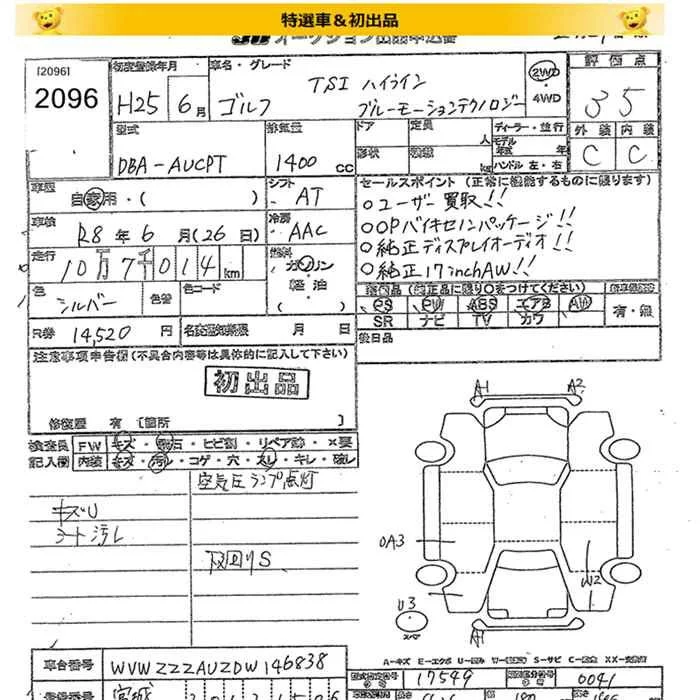 特選車＆初出品
[2096]
2096
初度登録年月
H25 6月
車名・グレード
TSI ハイライン
ゴルフ ブルーモーションテクノロジー
2WD
4WD
評価点
3.5
外装 内装
C C
型式
DBA-AUCPT
排気量
1400 cc
ドア
定員
人
形状
積載
kg
ディーラー・並行
モデル年式 年
ハンドル 左・右
車歴
自家用・( )
シフト
AT
車検
R8 年 6 月(26 日)
冷房
AAC
走行
10万7千014 km
燃料
ガソリン
軽油
色
シルバー
色替
色コード
R券 14,520 円
名義変更期限 月 日
セールスポイント(正常に機能するものに限ります)
○ユーザー買取!!
○OPバイキセノンパッケージ!!
○純正ディスプレイオーディオ!!
○純正17inchAW!!
装備品(純正品に限り○をつけてください)
PS PW ABS エアB AW
SR ナビ TV カワ
有・無
後日品
注意事項申告欄(不具合内容等は具体的に記入して下さい)
初出品
修復歴 有 [箇所 ]
検査員記入欄
FW キズ・飛石・ヒビ割・リペア跡・×要
内装 キズ・汚レ・コゲ・穴・スレ・キレ・破レ
空気圧ランプ点灯
キズU
シート汚レ
下回りS
A1 A2
OA3
W2
U3
スペア
A1
A-キズ E-エクボ U-凹み W-補修跡 S-サビ C-腐食 XX-交換済
車台番号 WVWZZZAUZDW146838
17549
0041
宮城